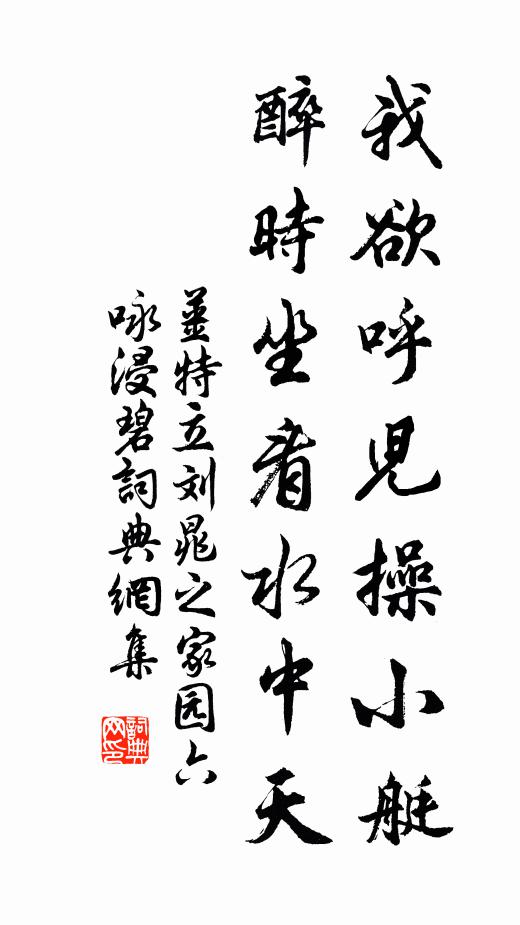 我欲呼児操小艇
醉時坐看水中天
姜特立刘晁之家园六
咏浸碧詞典網集
詞典网印